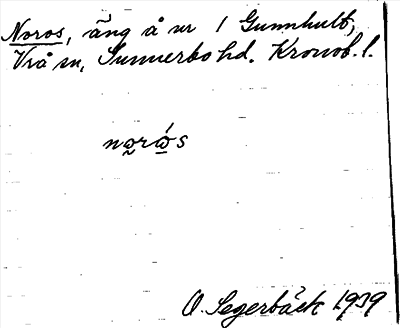 Noros, äng å nr 1 Gunnhult,
Vrå sn, Sunnerbo hd. Kronob. l.
no̰rώ̱s
O. Segerbäck 1939